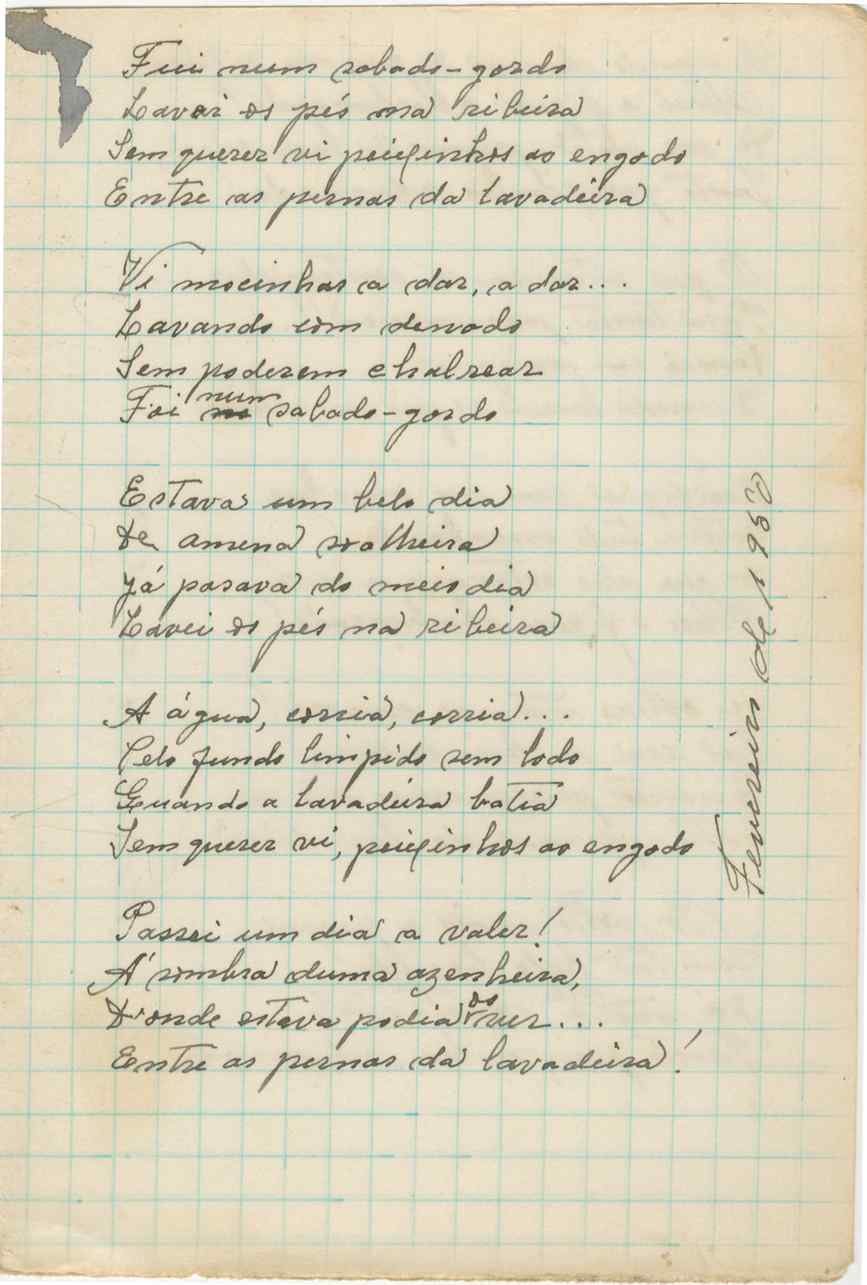 Fui num sabado-gordo
Lavei os pés na ribeira
Sem querer vi peixinhos ao engodo
Entre as pernas da lavadeira
Vi mocinhas a dar, a dar...
Lavando com denodo
Sem poderem chalrear
Foi num sabado-gordo
Estava um belo dia
De amena soalheira
Já pasava do meio dia
Lavei os pés na ribeira
A água, corria, corria...
Pelo fundo limpido sem lodo
Quando a lavadeira batia
Sem querer vi, peixinhos ao engodo
Passei um dia a valer!
Á sombra duma azenheira,
D'onde estava podia os ver...
Entre as pernas da lavadeira!
Fevereiro de 195